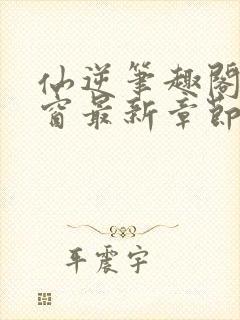 仙逆笔趣阁
窗最新章节
平震宇